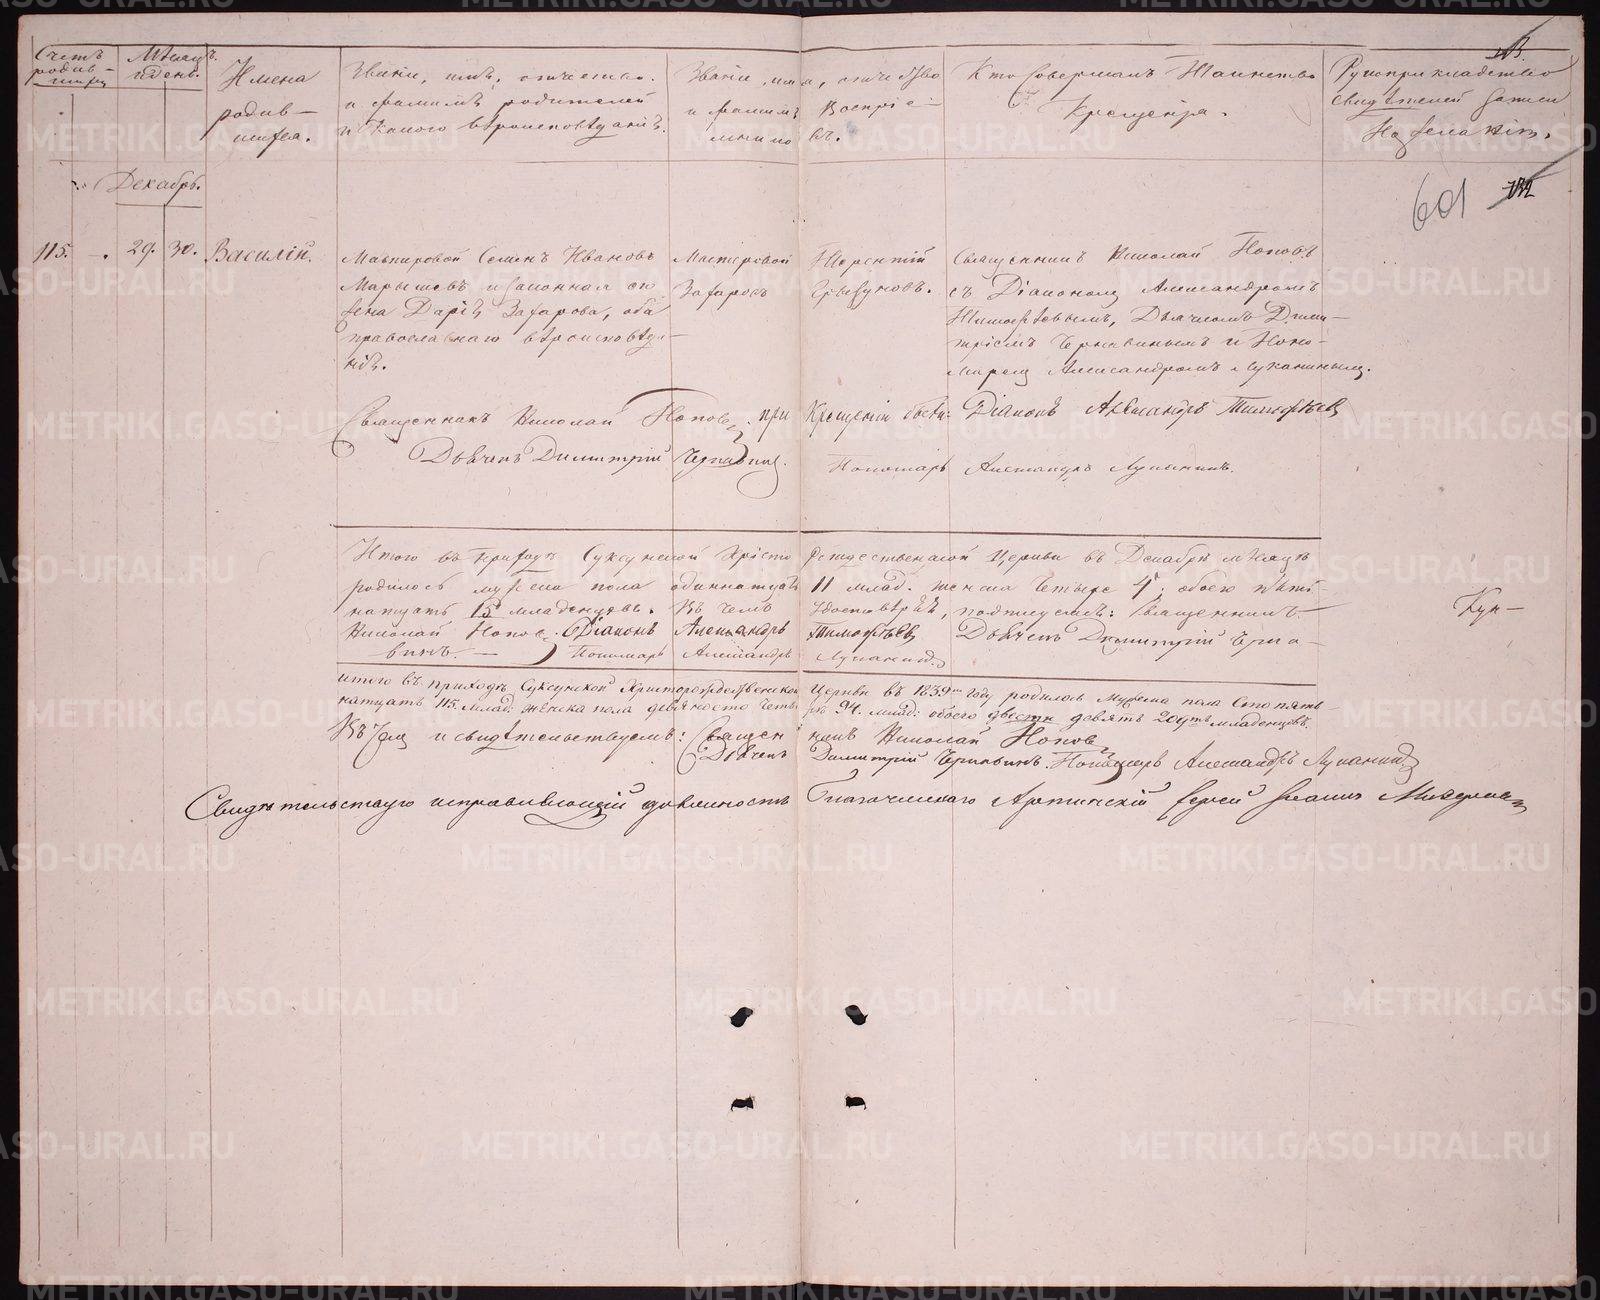 Счетъ родив-шихся
Мѣсяцъ и день.
Имена родив-шихся.
Званіе, имя, отчество.
и фамилія родителей
и какого вѣроисповѣданія.
Званіе, имя, отчество
и фамилія Воспріе-
мниковъ.
Кто совершалъ Таинство
Крещенія.
Рукоприкладство
свидѣтелей записи
по желанію.
Декабрь.
601
115. 29. 30. Василій.
Мастеровой Семенъ Ивановъ
Марышевъ и законная его
жена Дарія Захарова, оба
православнаго вѣроисповѣда-
нія.
Мастеровой Терентій
Захаровъ
Священникъ Николай Поповъ
съ Діакономъ Александромъ
Тимофѣевымъ, Дьячкомъ Дими-
тріемъ Чернавинымъ и Поно-
маремъ Александромъ Луканинымъ.
Священникъ Николай Поповъ. при Крещеніи были: Діаконъ Александръ Тимофѣевъ
Дьячекъ Димитрій Чернавинъ. Пономарь Александръ Луканинъ.
Итого въ приходѣ Суксунской Христорождественской Церкви въ Декабрѣ мѣсяцѣ
родилось мужеска пола одиннатцать 11 млад. женска четыре 4. обоего пят-
натцать 15 младенцевъ. Въ чемъ подписуемъ: Священникъ
Николай Поповъ. Діаконъ Александръ Тимофѣевъ Дьячекъ Димитрій Черна-
винъ. — Пономарь Александръ Луканинъ.
Итого въ приходѣ Суксунской Христорождественской Церкви въ 1839мъ году родилось Мужеска пола Сто пят-
натцать 115. млад: женска пола девяносто четыре 94. млад: обоего двѣсти девять 209ть младенцевъ.
Въ чемъ и свидѣтельствуемъ: Священникъ Николай Поповъ
Дьячекъ Димитрій Чернавинъ. Пономарь Александръ Луканинъ
Свидѣтельствую исправляющій должность Благочиннаго Артинскій Іерей
Кун-
METRIKI.GASO-URAL.RU